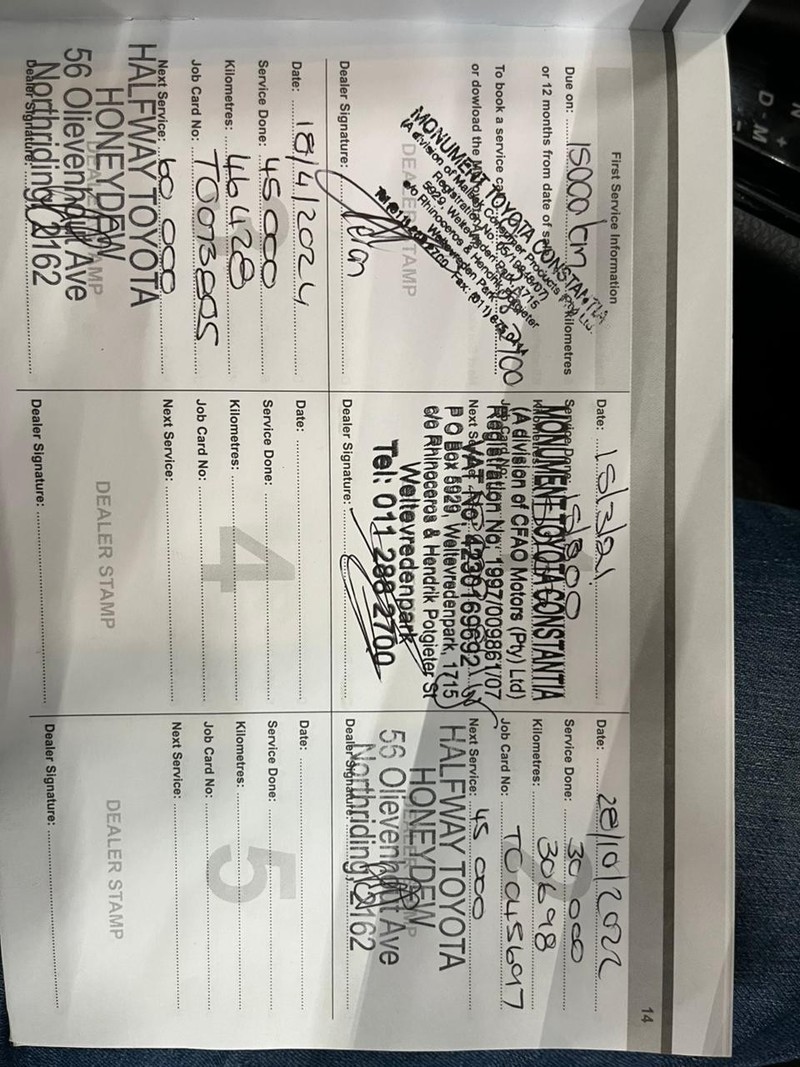 14
First Service Information
Due on: 15000 km kilometres
or 12 months from date of sale
To book a service
or dowload the
DEALER STAMP
MONUMENT TOYOTA CONSTANTIA
(A division of Consumer Products (Pty) Ltd.
5929, Weltevreden Park, 1715
c/o Rhinoceros & Hendrik Potgieter
Weltevreden Park
Dealer Signature:
Date: 15/3/21
Service Done: 15000
Kilometres:
Job Card No:
Next Service:
MONUMENT TOYOTA CONSTANTIA
(A division of CFAO Motors (Pty) Ltd)
Registration No: 1997/009861/07
VAT. No: 4230169692
P O Box 5929, Weltevredenpark, 1715
c/o Rhinoceros & Hendrik Potgieter St
Weltevredenpark
Tel: 011 288 2700
Dealer Signature:
Date: 28/10/2022
Service Done: 30 000
Kilometres: 30698
Job Card No: T0045697
Next Service: 45 000
HALFWAY TOYOTA
HONEYDEW
56 Olievenhout Ave
Northriding, 2162
Dealer Signature:
Date: 18/4/2024
Service Done: 45000
Kilometres: 46428
Job Card No: T0073805
Next Service: 60 000
HALFWAY TOYOTA
HONEYDEW
56 Olievenhout Ave
Northriding, 2162
Dealer Signature:
4
Date:
Service Done:
Kilometres:
Job Card No:
Next Service:
DEALER STAMP
Dealer Signature:
5
Date:
Service Done:
Kilometres:
Job Card No:
Next Service:
DEALER STAMP
Dealer Signature: